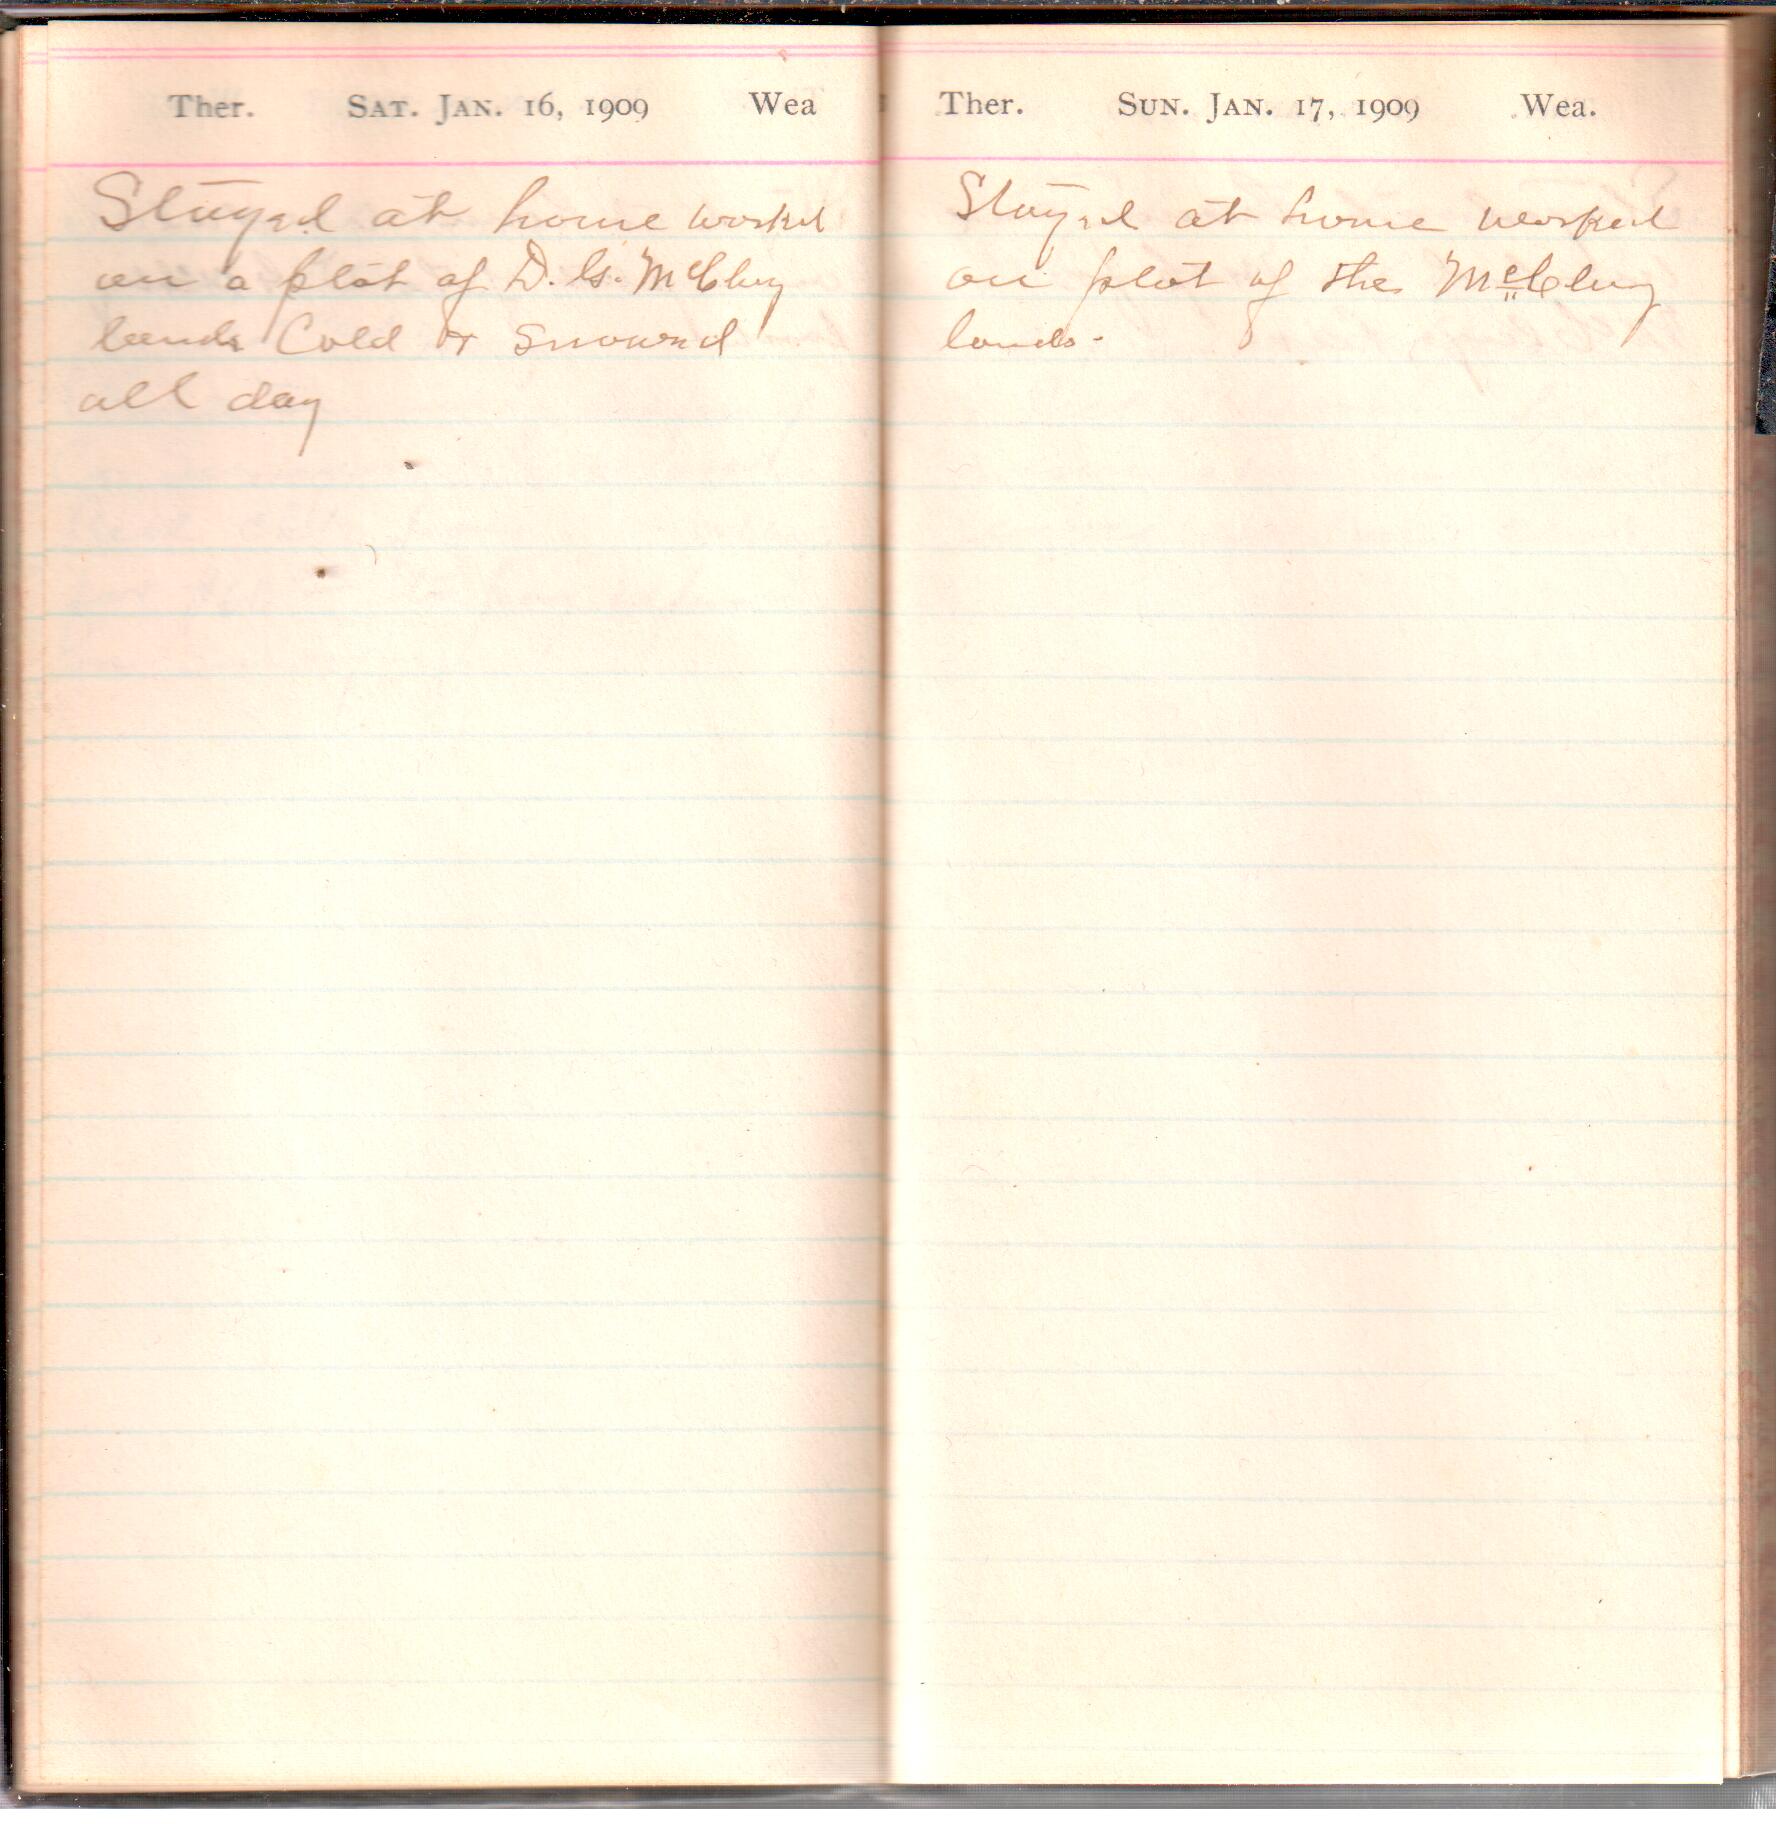 Ther. Sat. Jan. 16, 1909 Wea
Stayed at home worked
on a plat of D. G. McClung
lands Cold & Snowed
all day
Ther. Sun. Jan. 17, 1909 Wea.
Stayed at home worked
on plat of the McClung
lands.